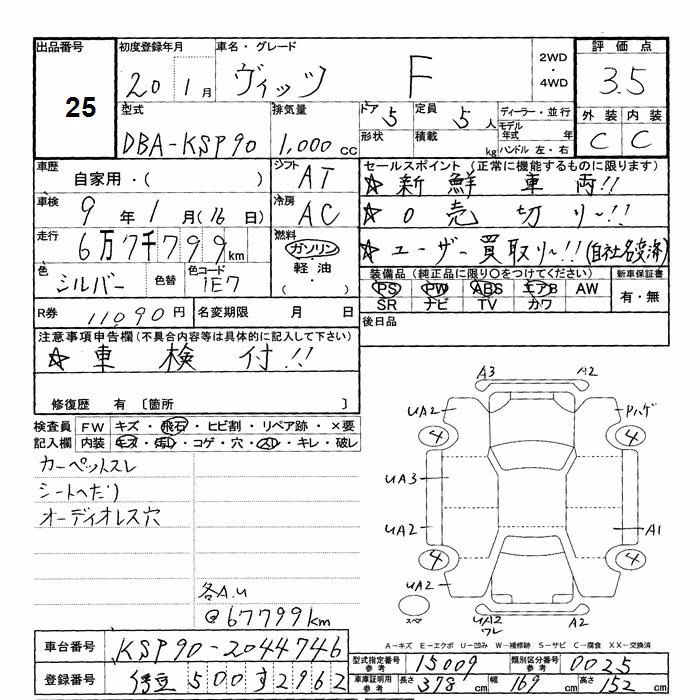 出品番号
25
初度登録年月
20 1月
車名・グレード
ヴィッツ F
2WD
・
4WD
評価点
3.5
外装 内装
C C
型式
DBA-KSP90
排気量
1,000cc
ドア 5
形状
定員 5人
積載 kg
ディーラー・並行
モデル年式 年
ハンドル 左・右
車歴
自家用・( )
シフト
AT
車検
9年1月(16日)
冷房
AC
走行
6万7千799km
燃料
ガソリン
軽油
( ・ )
色
シルバー
色替
色コード
1E7
R券 11,090円
名変期限 月 日
セールスポイント (正常に機能するものに限ります)
☆新鮮車両!!
☆0売切り~!!
☆ユーザー買取り~!!(自社名変済)
装備品(純正品に限り○をつけてください)
PS PW ABS エアB AW
SR ナビ TV カワ
新車保証書
有・無
後日品
注意事項申告欄(不具合内容等は具体的に記入して下さい)
☆車検付!!
修復歴 有 〔箇所 〕
検査員記入欄
FW キズ・飛石・ヒビ割・リペア跡・×要
内装 キズ・汚レ・コゲ・穴・スレ・キレ・破レ
カーペットスレ
シートへたり
オーディオレス穴
各A.U
@67799km
A3 A2
UA2 Pハゲ
4 4
UA3
UA2 A1
4 4
UA2
スペア
UA2
ワレ
A2
A-キズ E-エクボ U-凹み W-補修跡 S-サビ C-腐食 XX-交換済
車台番号 KSP90-2044746
登録番号 伊豆500す2962
型式指定番号
参考
15009
類別区分番号
参考
0025
車庫証明用
参考
長さ 378cm 幅 169cm 高さ 152cm